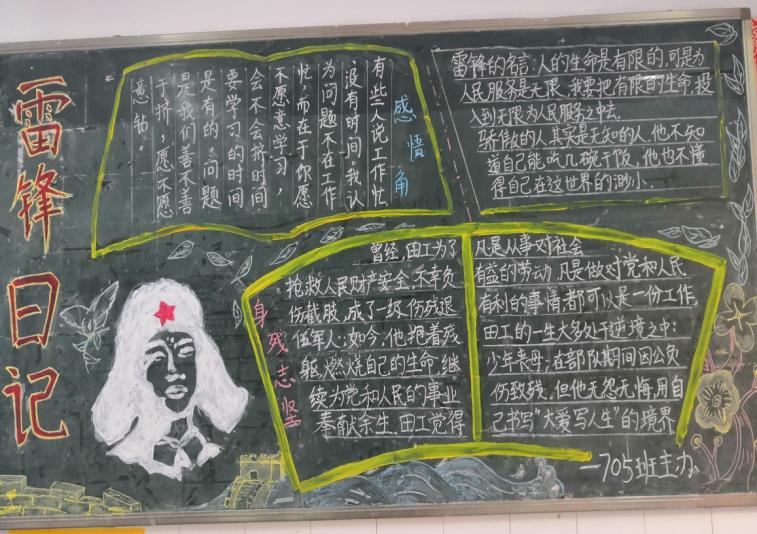 雷锋日记
感悟角
有些人说工作忙
、没有时间。我认
为问题不在工作
忙，而在于你愿
不愿意学习，
会不会挤时间
要学习的时间
是有的，问题
是我们善不善
于挤，愿不愿
意钻。
雷锋的名言：人的生命是有限的，可是为
人民服务是无限，我要把有限的生命，投
入到无限为人民服务之中去。
骄傲的人其实是无知的人，他不知
道自己能吃几碗干饭，他也不懂
得自己在这世界的渺小。
身残志坚
曾经，田工为了
抢救人民财产安全，不幸负
伤截肢，成了一级伤残退
伍军人；如今，他拖着残
躯，燃烧自己的生命，继
续为党和人民的事业
奉献余生。田工觉得
凡是从事对社会
有益的劳动，凡是做对党和人民
有利的事情，都可以是一份工作。
田工的一生大多处于逆境之中：
少年丧母，在部队期间因公负
伤致残。但他无怨无悔，用自
己书写“大爱写人生”的境界
—705班主办